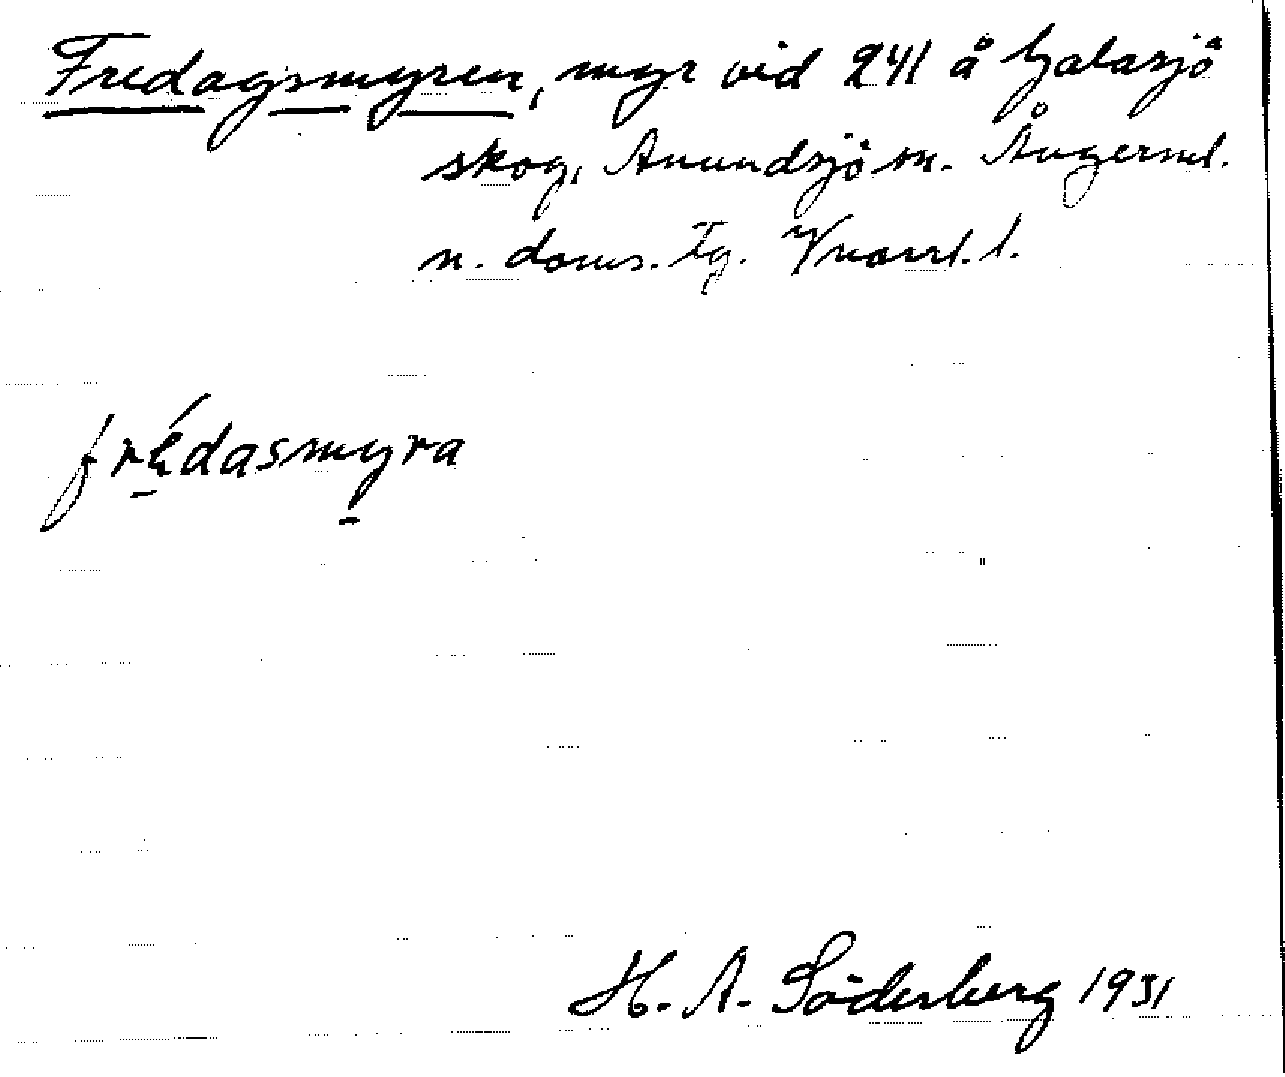 Fredagsmyren, myr vid 241 å Galasjö
skog, Anundsjö sn. Ångerml.
n. doms. tg. Vnorrl. l.
frédasmyra
H. A. Söderberg 1931